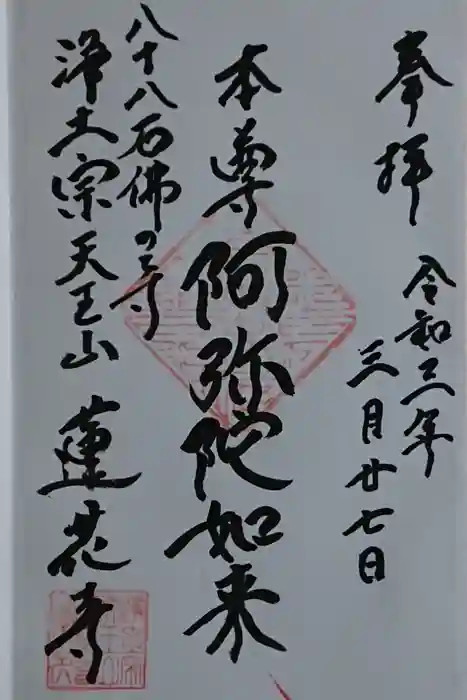 奉拝
令和三年
三月廿七日
本尊 阿弥陀如来
八十八石佛の寺
浄土宗天王山 蓮花寺